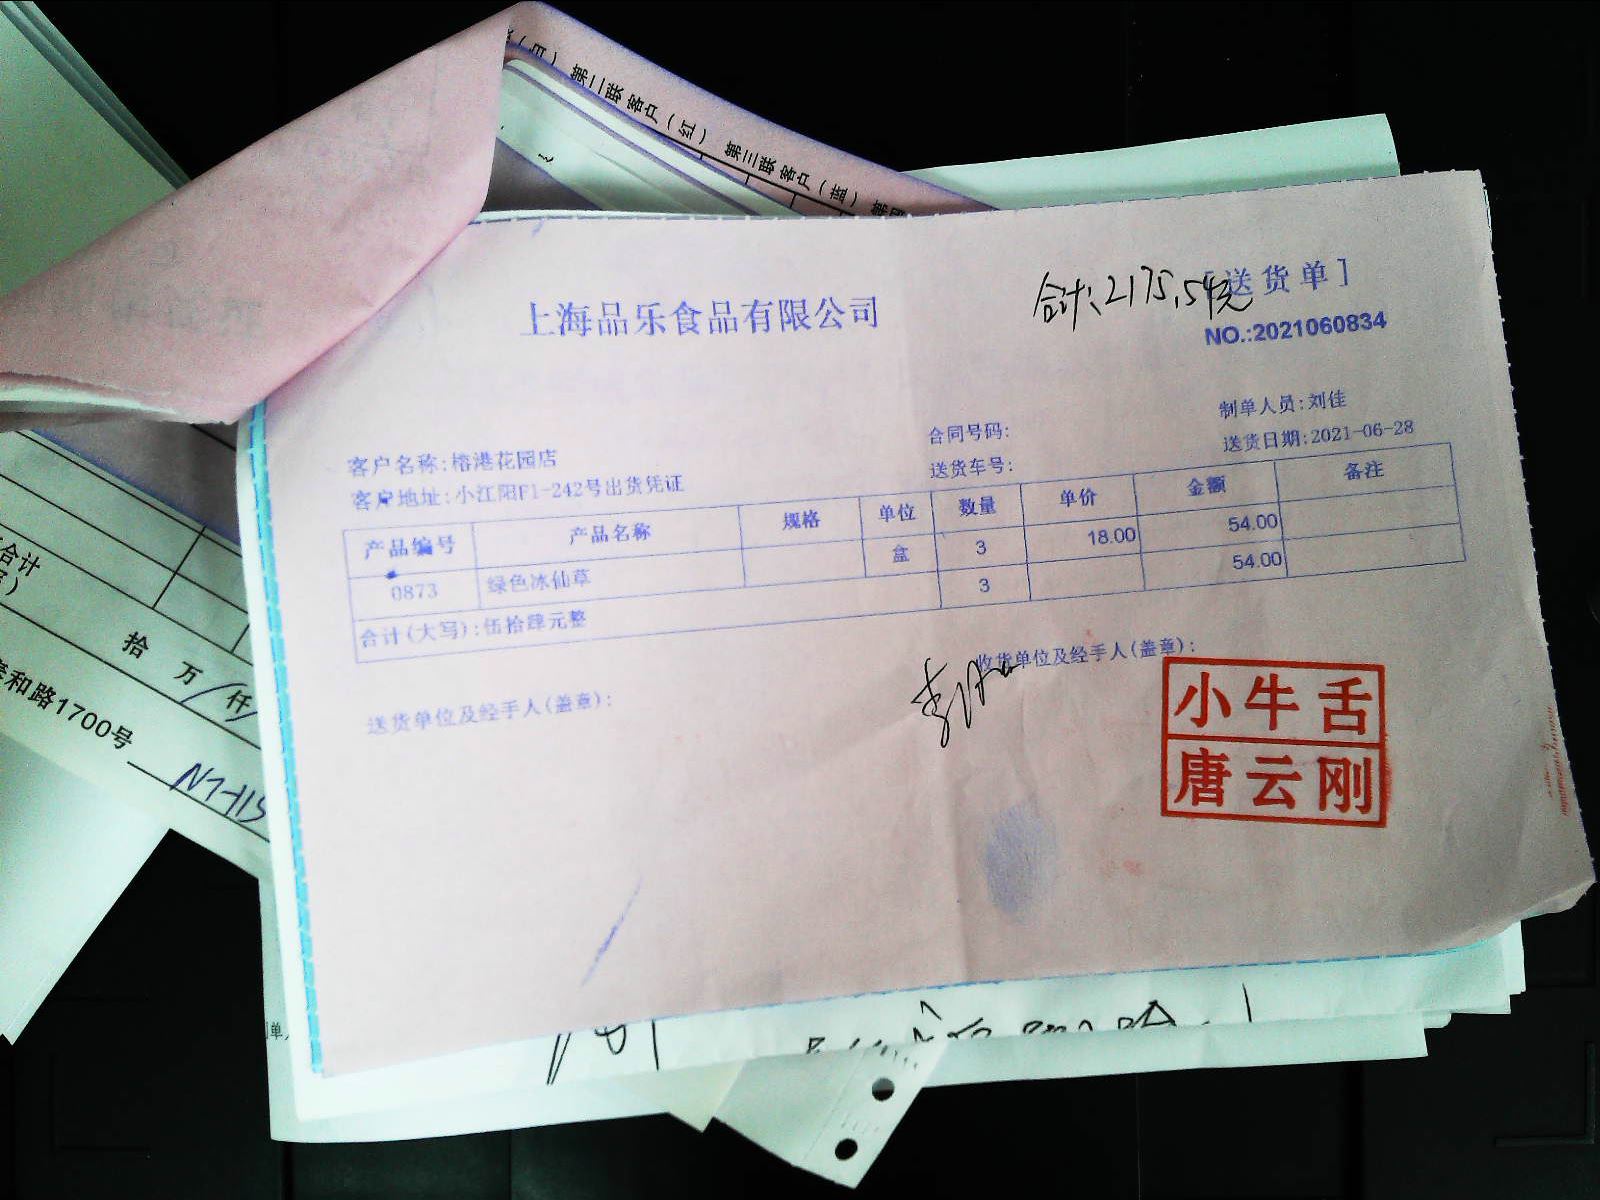 第二联客户(红) 第三联客户(蓝)
合计:2175.54元
[送货单]
上海品乐食品有限公司
NO.:2021060834
制单人员:刘佳
合同号码:
送货日期:2021-06-28
客户名称:榕港花园店
送货车号:
客户地址:小江阳F1-242号出货凭证
产品编号 产品名称 规格 单位 数量 单价 金额 备注
0873 绿色冰仙草 盒 3 18.00 54.00
合计(大写):伍拾肆元整 3 54.00
送货单位及经手人(盖章):
收货单位及经手人(盖章):
小牛舌
唐云刚
合计
拾 万 仟
和路1700号